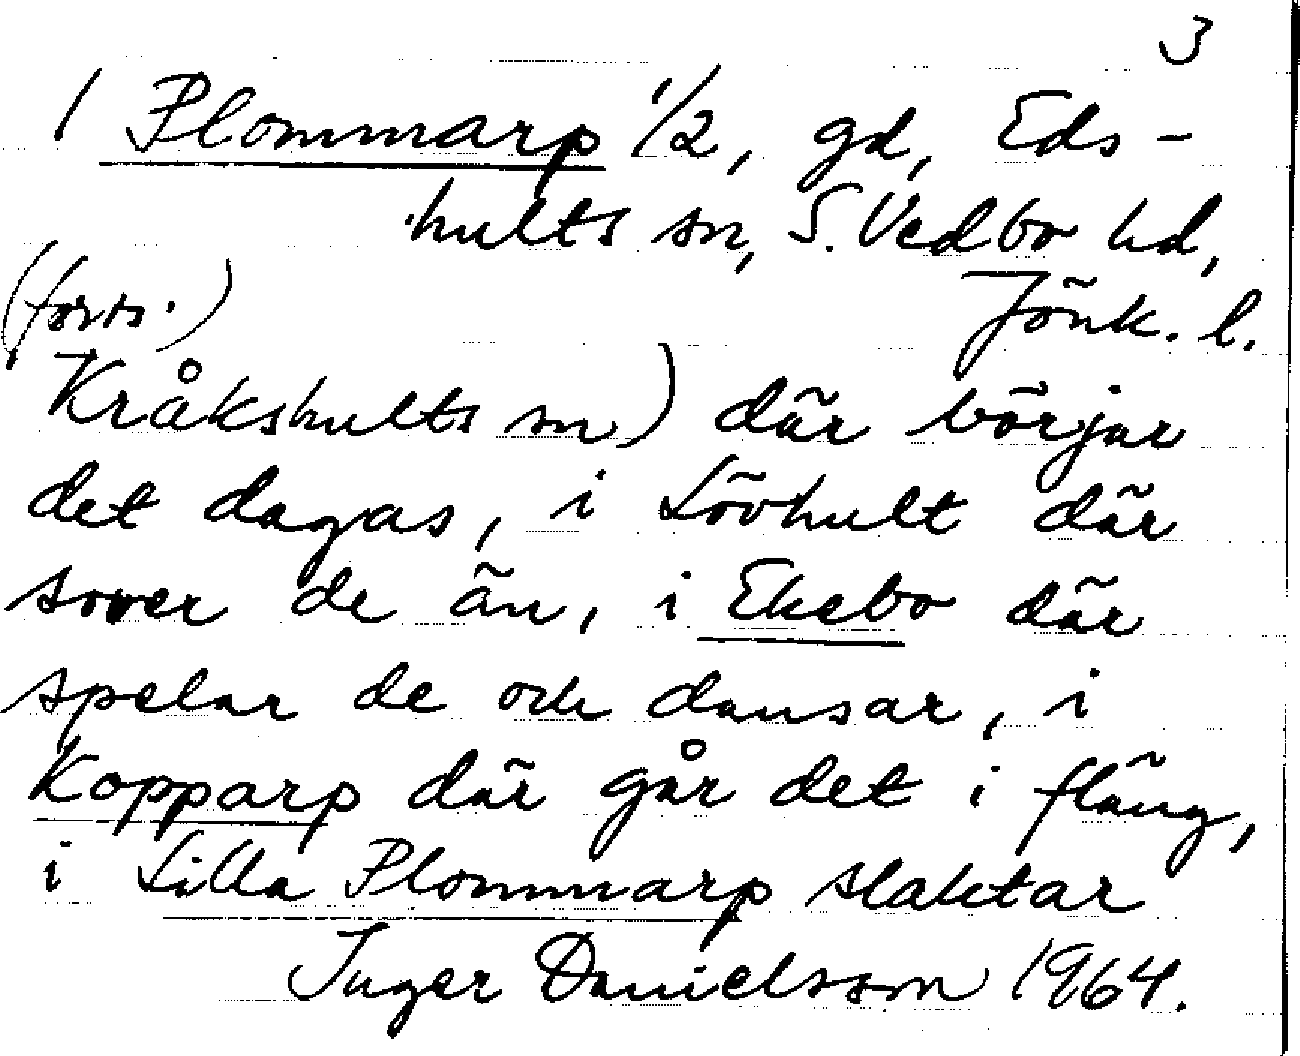 3
1 Plommarp 1/2, gd, Eds-
hults sn, S. Vedbo hd,
Jönk. l.
(forts.)
Kråkshults sn) där börjar
det dagas, i Lövhult där
sover de än, i Ekebo där
spelar de och dansar, i
Kopparp där går det i fläng,
i Lilla Plommarp slaktar
Inger Danielsson 1964.